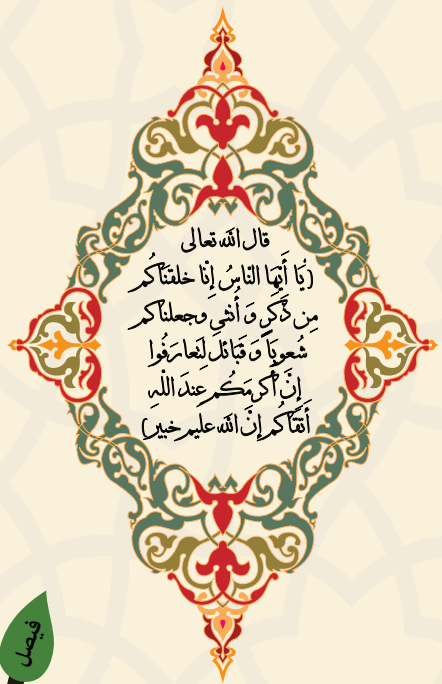 قال الله تعالى
(يَا أَيُّهَا النَّاسُ إِنَّا خلقنَاكُم
مِن ذَكَرٍ وَ أُنثى وجعلناكم
شُعوبًا وَ قَبَائلَ لِتَعارَفُوا
إِنَّ أكرمَكُم عندَ اللَّهِ
أَتقَاكُم إِنَّ الله عليم خبير)
فيصل